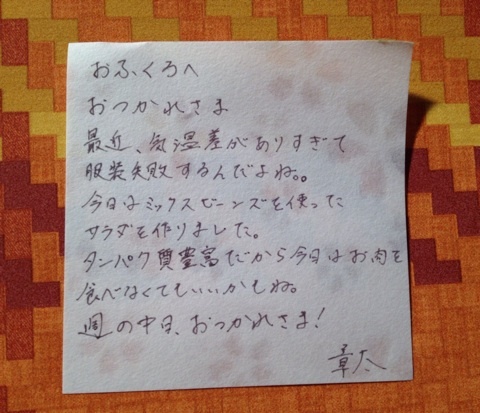 おふくろへ
おつかれさま
最近、気温差がありすぎて
服装失敗するんだよね。。
今日はミックスビーンズを使った
サラダを作りました。
タンパク質豊富だから今日はお肉を
食べなくてもいいかもね。
週の中日、おつかれさま!
章太